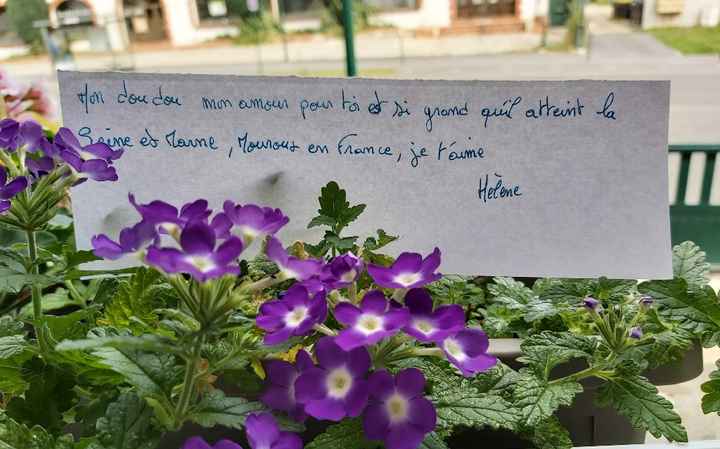 Mon doudou mon amour pour toi et si grand qu'il atteint la
Seine et Marne, Mouroux en France, je t'aime
Hélène